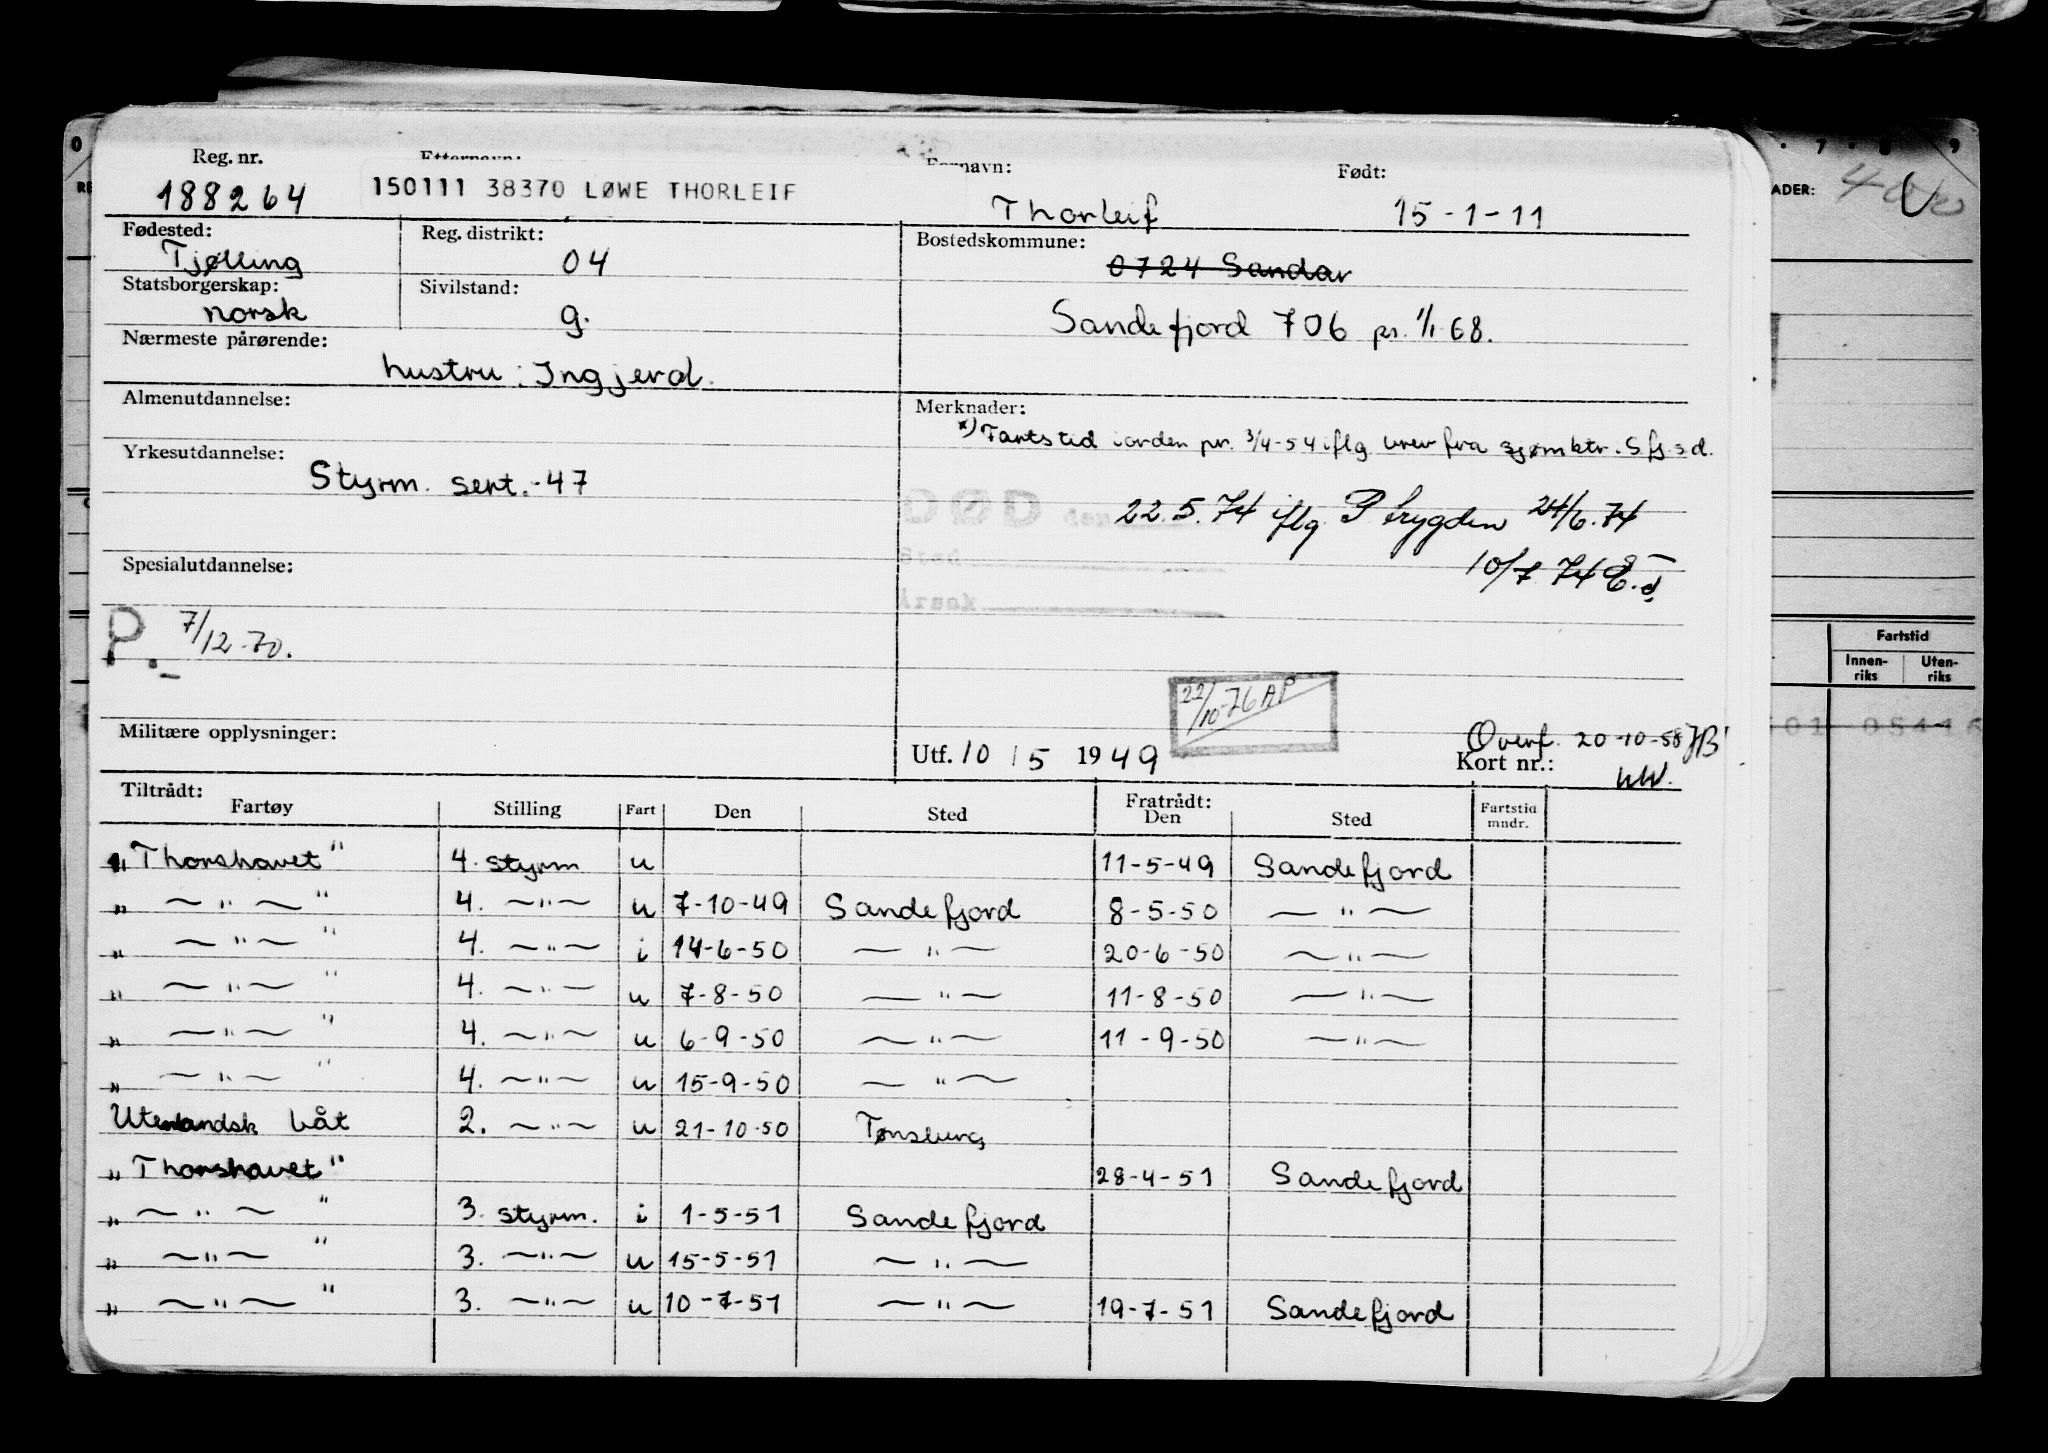 Reg. nr. Etternavn: Fornavn: Født:
188264 150111 38370 LØWE THORLEIF Thorleif 15-1-11
Fødested: Reg. distrikt: Bostedskommune:
Tjølling 04 0724 Sandar
Statsborgerskap: Sivilstand:
norsk g. Sandefjord 706 pr. 1/1 68.
Nærmeste pårørende:
hustru: Ingjerd.
Almenutdannelse: Merknader:
*) Fartstid iorden pr. 3/4-54 iflg. brev fra sjømktr. S.fj.s.d.
Yrkesutdannelse:
Styrm. sert.-47
DØD den 22.5.74 iflg. P trygden 24/6.74
10/7 74
Årsak
Spesialutdannelse:
P. 7/12-70.
22/10-76 AP
Militære opplysninger: Utf. 10 / 5 1949 Overf. 20-10-58
Kort nr.:
Tiltrådt: Fratrådt:
Fartøy Stilling Fart Den Sted Den Sted Fartstid mndr.
"Thorshavet" 4. styrm u 11-5-49 Sandefjord
" —"— " 4. —"— u 7-10-49 Sandefjord 8-5-50 —"—
" —"— " 4. —"— i 14-6-50 —"— 20-6-50 —"—
" —"— " 4. —"— u 7-8-50 —"— 11-8-50 —"—
" —"— " 4. —"— u 6-9-50 —"— 11-9-50 —"—
" —"— " 4. —"— u 15-9-50 —"—
Utenlandsk båt 2. —"— u 21-10-50 Tønsberg
"Thorshavet" 28-4-51 Sandefjord
" —"— " 3. styrm. i 1-5-51 Sandefjord
" —"— " 3. —"— u 15-5-51 —"—
" —"— " 3. —"— u 10-7-51 —"— 19-7-51 Sandefjord
7 8 9
ADER:
Fartstid
Innen-riks Uten-riks